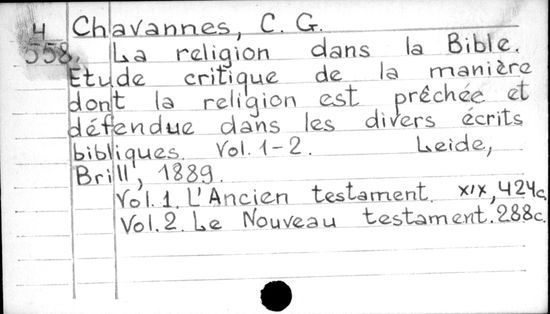 4 Chavannes, C. G.
558. La religion dans la Bible.
Etude critique de la manière
dont la religion est prêchée et
défendue dans les divers écrits
bibliques. Vol. 1-2. Leide,
Brill, 1889.
Vol. 1. L'Ancien testament. XIX, 424c.
Vol. 2. Le Nouveau testament. 288c.